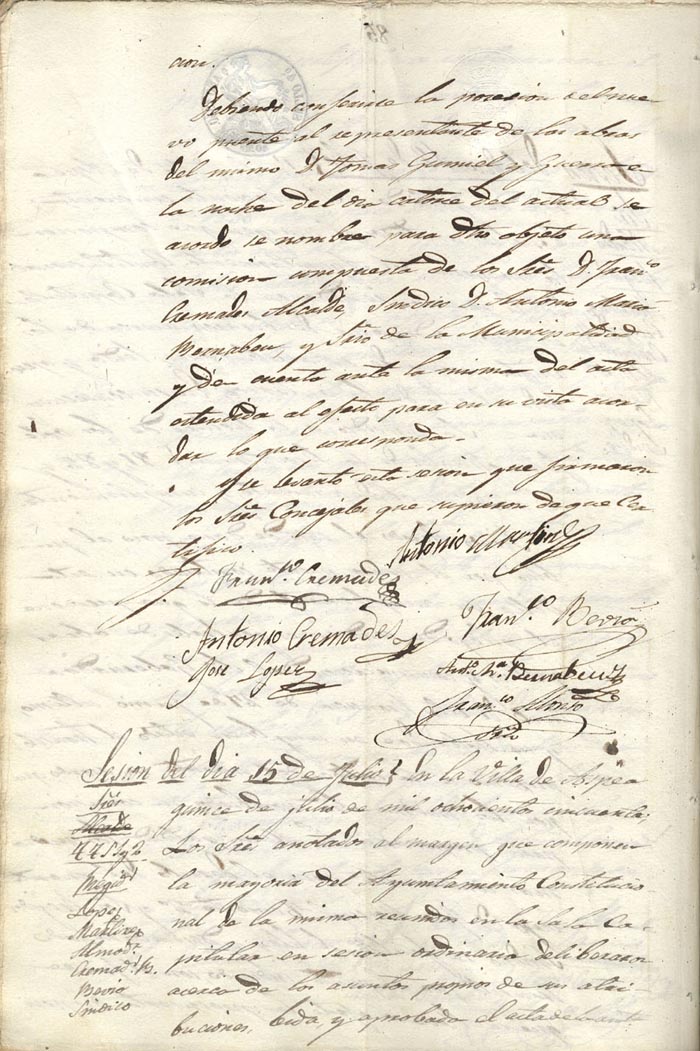 cion.
Debiendo conferirse la posesion del nue-
vo puente al representante de las obras
del mismo D. Tomas Gumiel y Guerra e
la noche del dia catorce del actual se
acordo se nombre para dho objeto una
comision compuesta de los Sres D. Franco
Cremades Alcalde, Sindico D. Antonio Maria
Bernabeu, y Srio de la Municipalidad
y de cuenta ante la misma del acta
estendida al efecto para en su vista acor-
dar lo que corresponda.
Y se levanto esta sesion que firmaron
los Sres Concejales que supieron de que Cer-
tifico.
Antonio Martinez
Franco Cremades
Antonio Cremades
Franco Berna
Jose Lopez
Anto Ma Bernabeu
Franco Alonso
Srio
Sesion del dia 15 de Julio} En la Villa de Aspe a
quince de julio de mil ochocientos cincuenta
Los Sres anotados al margen que componen
la mayoria del Ayuntamiento Constitucio-
nal de la misma reunidos en la Sala Ca-
pitular en sesion ordinaria deliberaron
acerca de los asuntos propios de sus atri-
buciones, leida, y aprobada el acta de la ante
Sres
Alcalde
Lopez
Martinez
Almodr
Cremads
Sindico